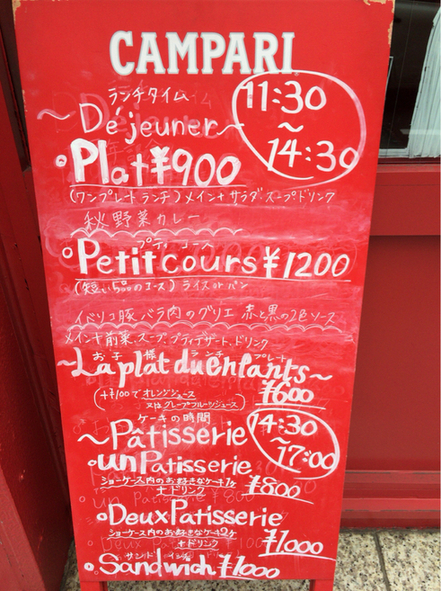 CAMPARI
ランチタイム
~Dejeuner~
11:30
~
14:30
Plat ¥900
(ワンプレートランチ) メイン+サラダ・スープドリンク
秋野菜カレー
プティコース
Petit cours ¥1200
ライス or パン
イベリコ豚バラ肉のグリエ 赤と黒の2色ソース
メイン+前菜、スープ、プティデザート、ドリンク
お子様ランチプレート
~La plat du enfants~
¥600
(+¥100でオレンジジュース
又はグレープフルーツジュース)
ケーキの時間
~Pâtisserie
14:30
~
17:00
un Patisserie
ショーケース内のお好きなケーキ1ヶ
+ドリンク
¥800
Deux Patisserie
ショーケース内のお好きなケーキ2ヶ
+ドリンク
¥1,000
サンドイッチ
Sandwich ¥1,000